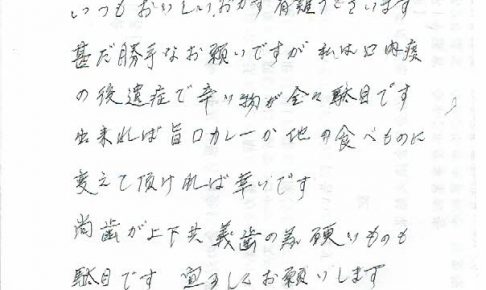 いつもおいしいおかず有難うございます
甚だ勝手なお願いですが私は口内炎
の後遺症で辛い物が全々駄目です
出来れば旨口カレーか他の食べものに
変えて頂ければ幸いです
尚歯が上下共義歯の為硬いものも
駄目です 宜しくお願いします